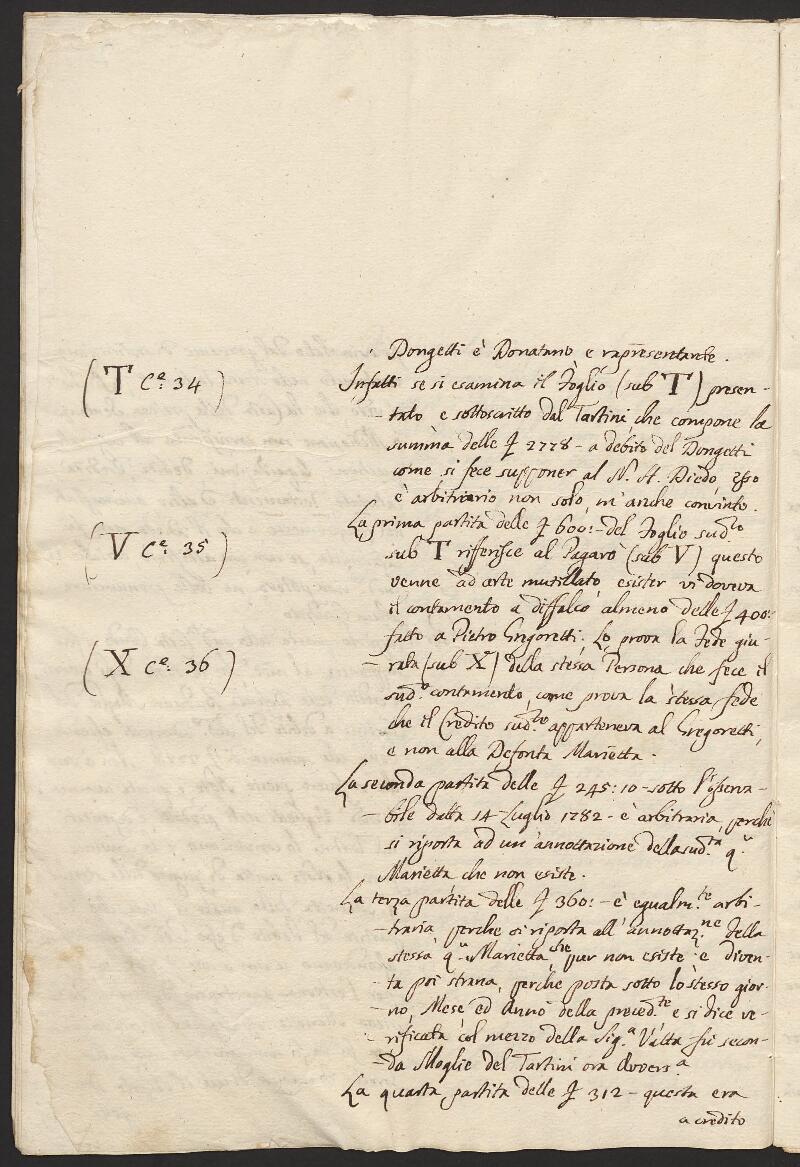 Dongetti è Donatario e rapresentante.
(T Ce: 34)
Infatti se si esamina il Foglio (sub T) presen-
-tato e sottoscritto dal Tartini che compone la
summa delle £ 2778 - a debito del Dongetti
come si fece supponer al N. H. Diedo, esso
è arbitriario non solo, m'anche convinto.
La prima partita delle £ 600:- del Foglio sud.to
(V Ce: 35)
sub T rifferisce al Pagarò (sub V) questo
venne ad arte mutillato, esister vi doveva
il contamento a diffalco almeno delle £ 400:
fatto a Pietro Gregoretti. Lo prova la Fede giu-
(X Ce: 36)
-rata (sub X) della stessa Persona che fece il
sud.o contamento, come prova la stessa fede
che il Credito sud.to apparteneva al Gregoretti,
e non alla Defonta Marietta.
La seconda partita delle £ 245:10 - sotto l'osserva-
-bile datta 14 Luglio 1782 - è arbitraria, perche
si riporta ad un'annottazione della sud.ta q.m
Marietta che non esiste.
La terza partita delle £ 360:- è egualm.te arbi-
-traria perche si riporta all'annottaz.ne della
stessa q.m Marietta che pur non esiste: e diven-
-ta poi strana, perche posta sotto lo stesso gior-
-no, Mese ed Anno della preced.te e si dice ve-
-rificata col mezzo della Sig.a Valta fù secon-
-da Moglie del Tartini ora Avvers.a
La quarta partita delle £ 312 - questa era
a credito